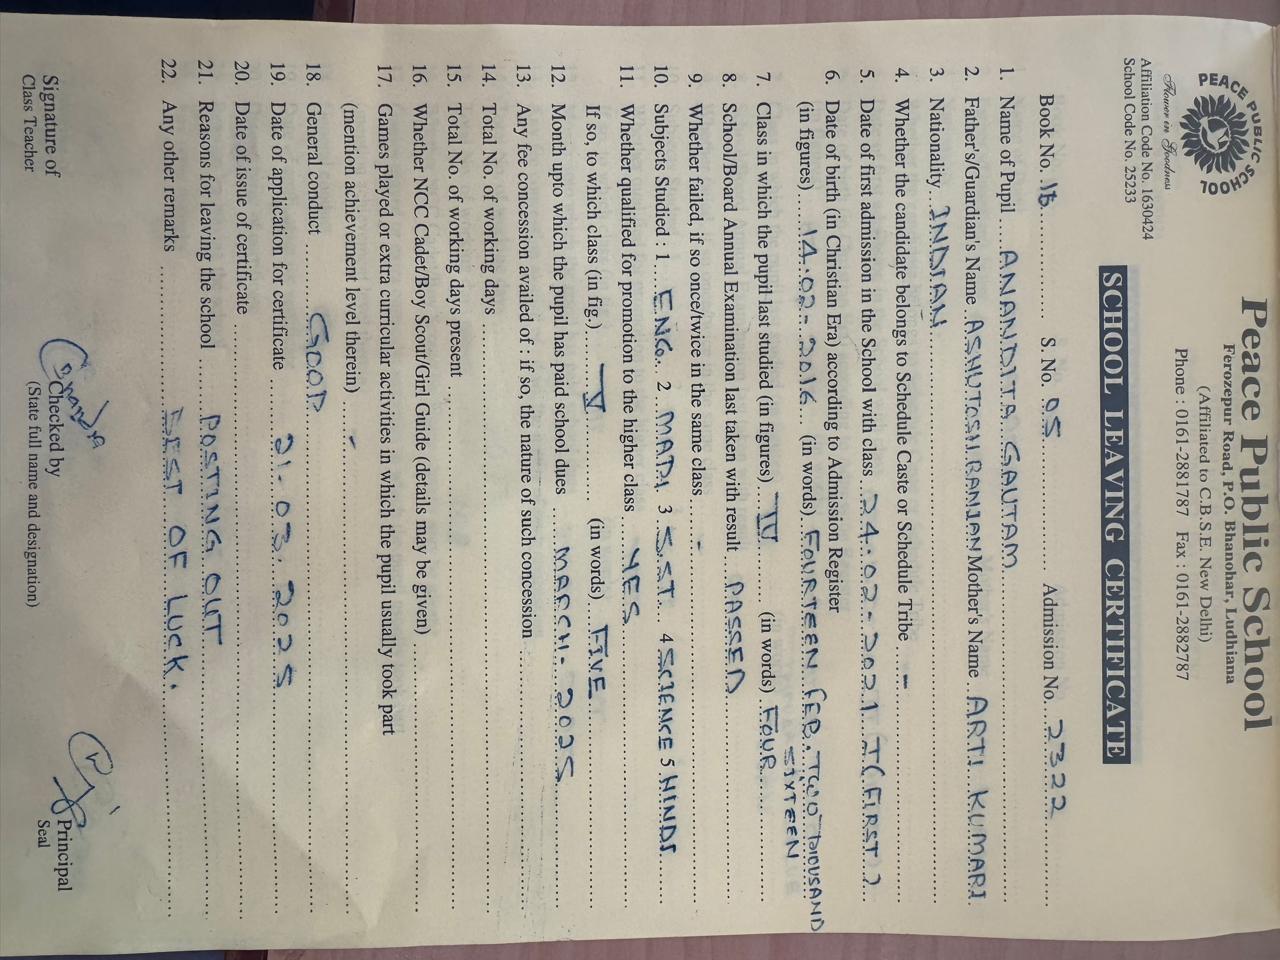 PEACE PUBLIC SCHOOL
Flower in Goodness
Peace Public School
Ferozepur Road, P.O. Bhanohar, Ludhiana
(Affiliated to C.B.S.E. New Delhi)
Phone : 0161-2881787 Fax : 0161-2882787
Affiliation Code No. 1630424
School Code No. 25233
SCHOOL LEAVING CERTIFICATE
Book No. 16 S No. 05 Admission No. 2322
1. Name of Pupil ANANDITA GAUTAM
2. Father's/Guardian's Name ASHUTOSH RANJAN Mother's Name ARTI KUMARI
3. Nationality INDIAN
4. Whether the candidate belongs to Schedule Caste or Schedule Tribe -
5. Date of first admission in the School with class 24-02-2021 I (FIRST)
6. Date of birth (in Christian Era) according to Admission Register
(in figures) 14-02-2016 (in words) FOURTEEN FEB. TWO THOUSAND
SIXTEEN
7. Class in which the pupil last studied (in figures) IV (in words) FOUR
8. School/Board Annual Examination last taken with result PASSED
9. Whether failed, if so once/twice in the same class -
10. Subjects Studied : 1 ENG. 2 MATH 3 S.ST. 4 SCIENCE 5 HINDI
11. Whether qualified for promotion to the higher class YES
If so, to which class (in fig.) V (in words) FIVE
12. Month upto which the pupil has paid school dues MARCH-2025
13. Any fee concession availed of : if so, the nature of such concession
14. Total No. of working days
15. Total No. of working days present
16. Whether NCC Cadet/Boy Scout/Girl Guide (details may be given)
17. Games played or extra curricular activities in which the pupil usually took part
(mention achievement level therein) -
18. General conduct GOOD
19. Date of application for certificate 21-03-2025
20. Date of issue of certificate
21. Reasons for leaving the school POSTING OUT
22. Any other remarks BEST OF LUCK.
Signature of
Class Teacher
Checked by
(State full name and designation)
Principal
Seal